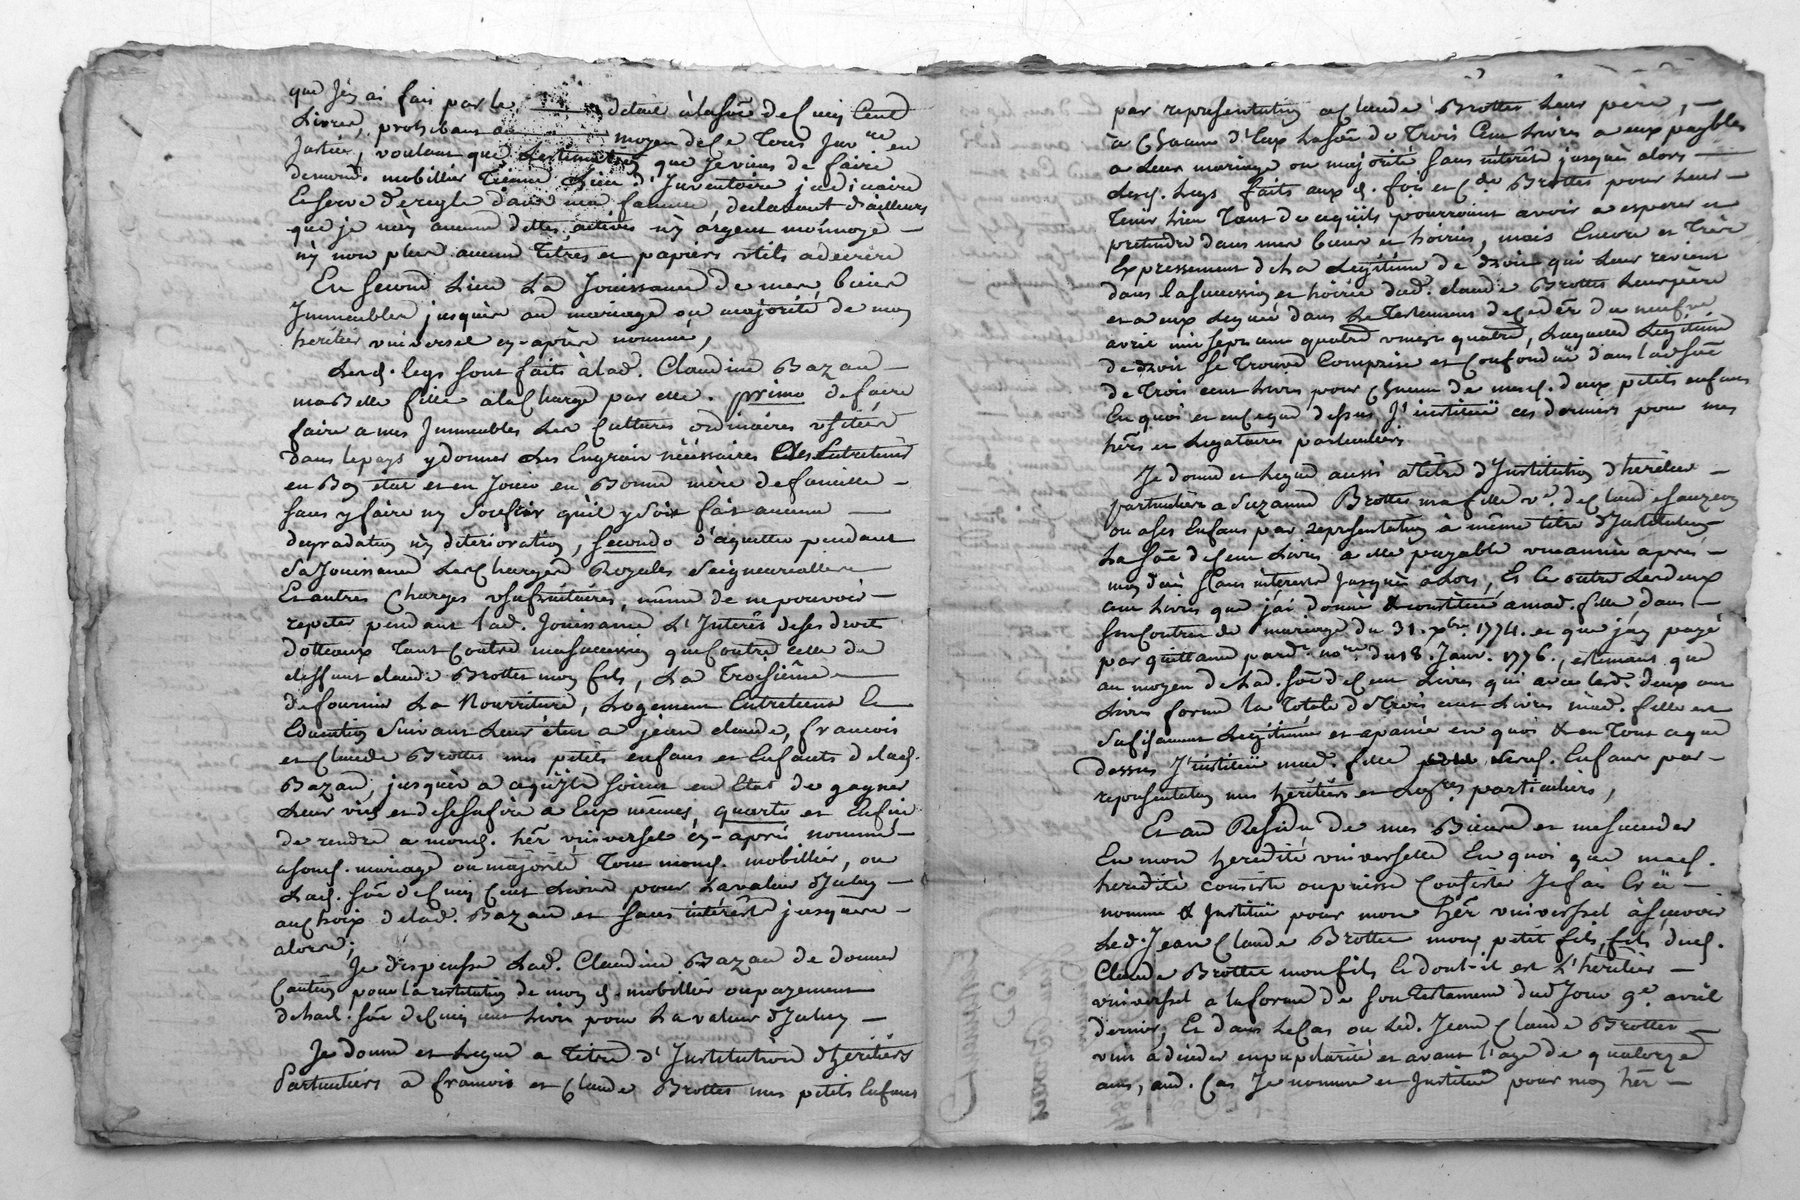 que j'en ai fais par le detail à la sôe de cinq Cent
Livres, prohibant au moyen de ce Tous Inv.re en
Justice, voulant que L'estimation que je viens de faire
de mond. mobillier Tienne Lieu d'Inventoire judiciaire
Et serve de regle dans ma famille, declarant d'ailleurs
que je n'ay aucune dettes actives ny argent monnoyé —
ny non plus aucuns Titres et papiers utils a decrire
En second Lieu La Jouissance de mes biens
Immeubles jusques au mariage ou majorité de mon
heritier universel cy-après nommé,
Lesd. legs sont faits à lad. Claudine Bazan —
ma Belle fille à la Charge par elle. primo de faire
faire a mes Immeubles Les Cultures ordinaires usitées
dans le pays y donner Les Engrais nécessaires Les Entretenir
en Bon état et en Jouir en Bonne mère de famille —
sans y faire ny souffrir qu'il y soit fait aucune —
degradation ny déterioration, secundo d'aquitter pendant
sa Jouissance Les Charges Royales Seigneurialles —
Et autres Charges usufruitaires, même de ne pouvoir —
repeter pendant lad. Jouissance L'Interêt de ses droits
dotteaux Tant Contre ma succession que Contre celle de
deffunt claude Brottes mon fils, La Troisiême —
de fournir La Nourriture, Logement Entretiens Et
Education suivant Leur état a jean claude, francois
et Claude Brottes mes petits enfans et Enfants de lad.
Bazan, jusques a ce qu'ils soient en Etat de gagner
Leur vie et de se suffire a Eux mêmes, quarto et Enfin
de rendre a mond. hêr universel cy-après nommé —
a sond. mariage ou majorité Tout mond. mobillier, ou
Lad. sôe de cinq Cent Livres pour La valeur d'Iceluy —
au choix de lad. Bazan et sans intérêt jusques —
alors;
Je dispensse Lad. Claudine Bazan de donner
Caution pour la restitution de mon d. mobillier ou payement
de lad. sôe de cinq cent Livres pour La valeur d'Iceluy —
Je donne et Legue a Titre d'Institution d'héritiers
Particuliers a francois et Claude Brottes mes petits Enfans
par representation de Claude Brottes Leur père, —
à Chacun d'Eux La sôe de Trois Cent Livres a eux payables
a Leur mariage ou majorité sans intérêts jusques alors —
Lesd. Legs faits aux d. fois et Cde Brottes pour Leur —
Tenir Lieu Tant de ce qu'ils pourroient avoir a esperer et
pretendre dans mes biens et hoiries, mais Encore et Très
Expressement de La Legitime de droit qui Leur revient
dans la succession et hoirie dud. claude Brottes Leur père
et a eux Leguée dans Le Testament de ce dêr du neufve
avril mil sept cent quatre vingt quatre, Laquelle Legitime
de droit se Trouve Comprise et Confonduë dans lad. sôe
de Trois cent Livres pour Chacun de mesd. deux petits enfans
En quoi et en ce que dessus J'instituë ces derniers pour mes
hêrs et Legataires particuliers
Je donne et Legue aussi a Titre d'Institution d'héritiere —
particuliere a Suzanne Brottes ma fille ve de Claude Sauzeon
ou a ses Enfans par representation a même titre d'Institution
La sôe de Cent Livres a elle payable une année après —
mon deces sans intérests jusques alors, Et ce outre Les deux
cent Livres que j'ai donné & constitué a mad. fille dans —
son Contrat de mariage du 31. xbre. 1774. et que j'ay payé
par quittance pard.t no.re du 18. Janv. 1776., estimant que
au moyen de Lad. sôe de Cent Livres qui avec lesd. deux cent
Livres forme la Totale de Trois cent Livres mad. fille est
sufisament Legitimée et apanée en quoi & en Tout ce que
dessus J'instituë mad. fille Sesd. Enfans par —
representation mes héritiers et Leg.res particuliers,
Et au Residu de mes Biens et me succeder
En mon heredité universelle En quoi que mad.
heredité consiste ou puisse Consister Je fais Créë —
nomme & Instituë pour mon hêr universel à sçavoir
Led. Jean Claude Brottes mond. petit fils, fils dud.
Claude Brottes mon fils Et dont il est L'héritier —
universel a la forme de son Testament dud. Jour 9e. avril
dernier, Et dans Le Cas ou Led. Jean Claude Brottes —
vint a deceder en pupilarité et avant l'age de quatorze
ans, aud. Cas Je nomme et Instituë pour mon hêr —